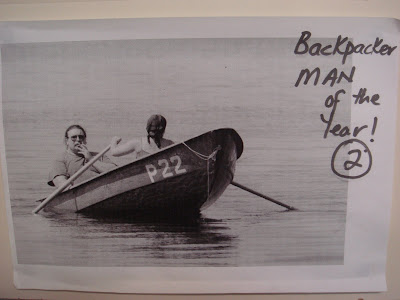 Backpacker
MAN
of the
Year!
2
P22